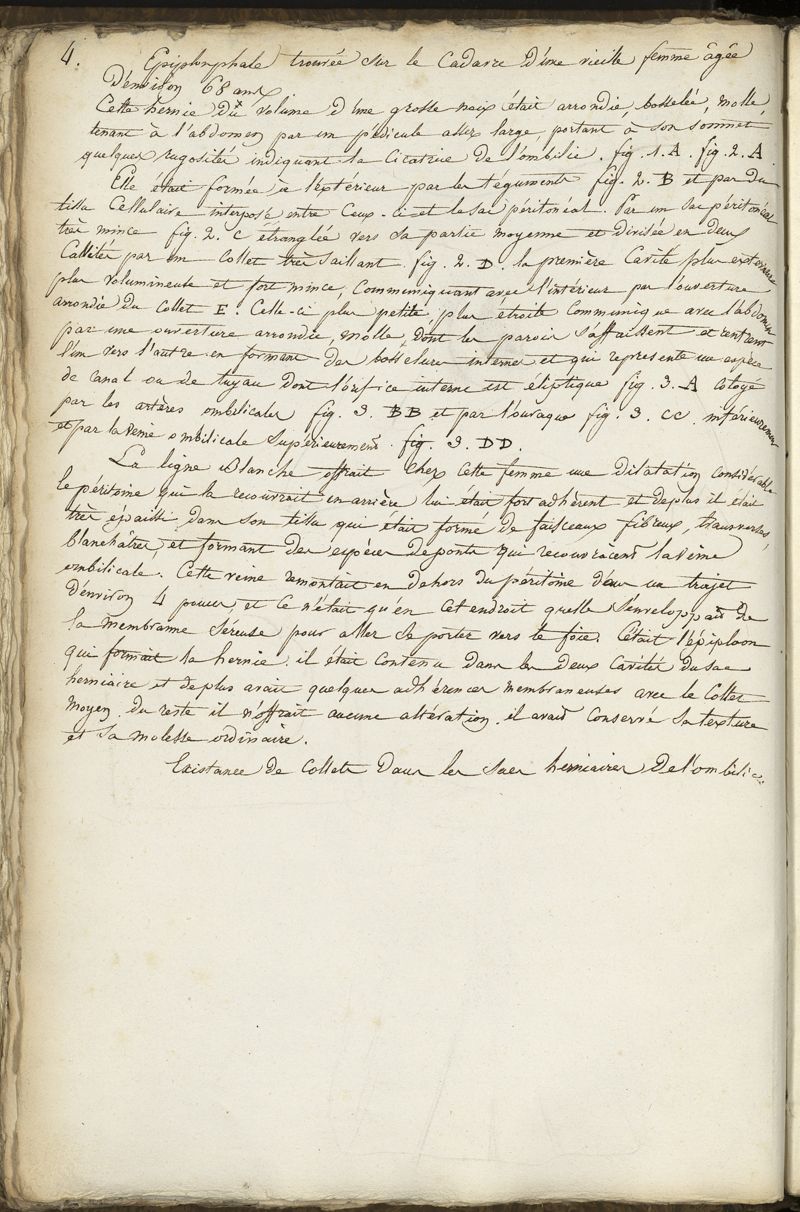 4. Epiplomphale trouvée sur le Cadavre d'une vieille femme âgée
D'environ 68 ans
Cette hernie du volume d'une grosse noix était arrondie, bosselée, molle,
tenant à l'abdomen par un pédicule assez large, portant à son sommet
quelques rugosités indiquant la Cicatrice de l'ombilic. fig. 1. A. fig. 2. A.
Elle était formée à l'extérieur par les téguments fig. 2. B et par du
tissu Cellulaire interposé entre Ceux-ci et le sac péritonéal. Par un sac péritonéal
très mince fig. 2. C étranglée vers sa partie moyenne et divisée en deux
Cavités par un Collet très saillant. fig. 2. D. la première Cavité plus extérieure
plus volumineuse et fort mince, Communiquant avec l'intérieur par l'ouverture
arrondie du Collet E. Celle-ci plus petite, plus étroite Communique avec l'abdomen
par une ouverture arrondie, molle, dont les parois s'affaissent et rentrent
l'un vers l'autre en formant des bosselures internes et qui représente une espèce
de Canal ou de tuyau dont l'orifice interne est éliptique fig. 3. A cotoyé
par les artères ombilicales fig. 3. BB et par l'ouraque fig. 3. CC. inférieurement
et par la veine ombilicale supérieurement. fig. 3. DD.
La ligne Blanche offrait chez cette femme une dilatation considérable
le péritoine qui la recouvrait en arrière lui était fort adhèrent et de plus il était
très épaissi dans son tissu qui était formé de faisceaux fibreux, transverses,
blanchâtres et formant des espèces de ponts qui recouvraient la veine
ombilicale. Cette veine remontait en dehors du péritoine dans un trajet
d'environ 4 pouces, et Ce n'était qu'en Cet endroit quelle s'enveloppait de
la membrane séreuse pour aller se porter vers le foie. C'était l'épiploon
qui formait la hernie. il était Contenu dans les deux Cavités du sac
herniaire et de plus avait quelques adhérences membraneuses avec le Collet
moyen. du reste il n'offrait aucune altération, il avait Conservé sa texture
et sa molesse ordinaire.
Existance de Collets dans les sacs herniaires De l'ombilic.